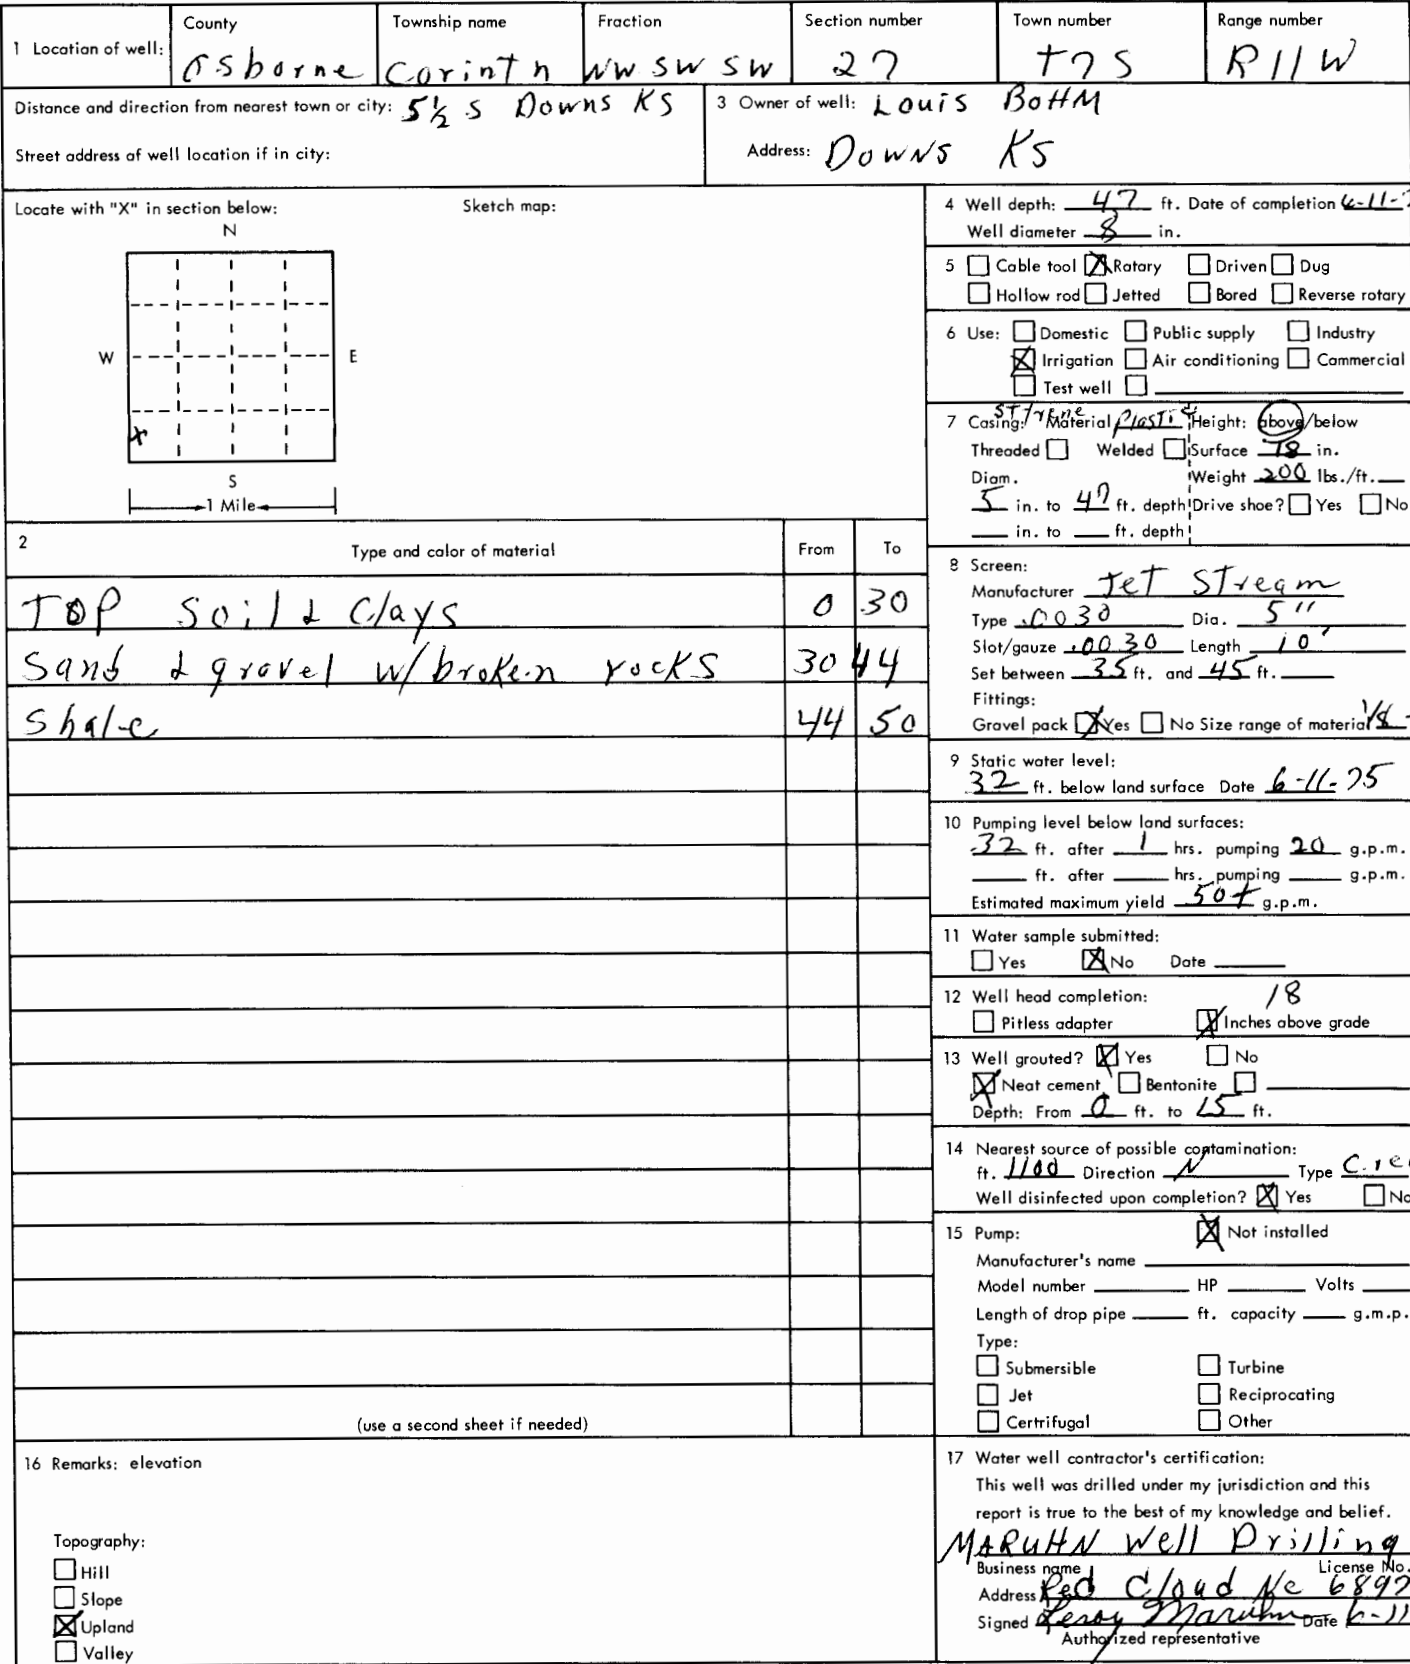 1 Location of well:
County
Osborne
Township name
Corinth
Fraction
NW SW SW
Section number
27
Town number
T7S
Range number
R11W
Distance and direction from nearest town or city: 5½ S Downs KS
Street address of well location if in city:
3 Owner of well: Louis BOHM
Address: DOWNS KS
Locate with "X" in section below:
Sketch map:
N
W
E
X
S
1 Mile
2
Type and color of material
From
To
TOP Soil & Clays 0 30
Sand & gravel w/broken rocks 30 44
Shale 44 50
(use a second sheet if needed)
4 Well depth: 47 ft. Date of completion 6-11-
Well diameter 8 in.
5 Cable tool X Rotary Driven Dug
Hollow rod Jetted Bored Reverse rotary
6 Use: Domestic Public supply Industry
X Irrigation Air conditioning Commercial
Test well
7 Casing: Styrene Material Plastic Height: above/below
Threaded Welded Surface 18 in.
Diam. Weight 200 lbs./ft.
5 in. to 47 ft. depth Drive shoe? Yes No
in. to ft. depth
8 Screen:
Manufacturer Jet Stream
Type .0030 Dia. 5"
Slot/gauze .0030 Length 10'
Set between 35 ft. and 45 ft.
Fittings:
Gravel pack X Yes No Size range of material 1/8
9 Static water level:
32 ft. below land surface Date 6-11-75
10 Pumping level below land surfaces:
32 ft. after 1 hrs. pumping 20 g.p.m.
ft. after hrs. pumping g.p.m.
Estimated maximum yield 50+ g.p.m.
11 Water sample submitted:
Yes X No Date
12 Well head completion: 18
Pitless adapter X Inches above grade
13 Well grouted? X Yes No
X Neat cement Bentonite
Depth: From 0 ft. to 15 ft.
14 Nearest source of possible contamination:
ft. 1100 Direction N Type
Well disinfected upon completion? X Yes No
15 Pump: X Not installed
Manufacturer's name
Model number HP Volts
Length of drop pipe ft. capacity g.m.p.
Type:
Submersible Turbine
Jet Reciprocating
Certrifugal Other
16 Remarks: elevation
Topography:
Hill
Slope
X Upland
Valley
17 Water well contractor's certification:
This well was drilled under my jurisdiction and this
report is true to the best of my knowledge and belief.
MARUHN Well Drilling
Business name License No.
Address Red Cloud Ne 6897
Signed Leroy Maruhn Date 6-11
Authorized representative